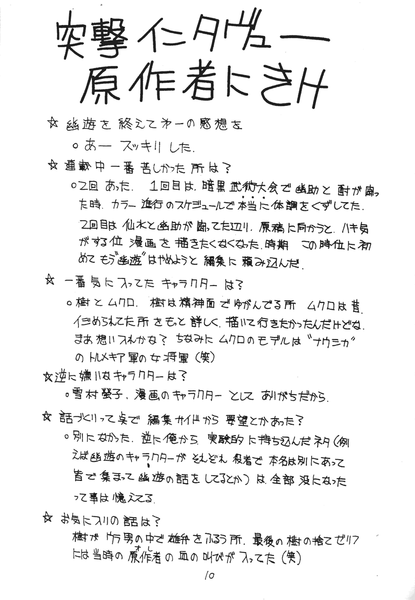 突撃インタヴュー
原作者にきけ
☆ 幽遊を終えて第一の感想を
○ あー スッキリした.
☆ 連載中一番苦しかった所は?
○ 2回あった. 1回目は、暗黒武術大会で幽助と酎が闘っ
た時. カラー進行のスケジュールで本当に体調をくずしてた.
2回目は仙水と幽助が闘ってた辺り. 原稿に向かうと、ハキ気
がする位 漫画を描きたくなくなった時期 この時位に初
めてもう"幽遊"はやめようと編集に頼み込んだ.
☆ 一番気に入ってたキャラクターは?
○ 樹とムクロ. 樹は精神面でゆがんでる所 ムクロは昔.
イジめられてた所をもっと詳しく、描いて行きたかったんだけどな.
まあ想い入れかな? ちなみにムクロのモデルは"ナウシカ"
のトルメキア軍の女将軍(笑)
☆ 逆に嫌いなキャラクターは?
○ 雪村螢子. 漫画のキャラクターとして ありがちだから.
☆ 話づくりって点で編集サイドから要望とかあった?
○ 別になかった. 逆に俺から 実験的に持ち込んだネタ(例
えば幽遊のキャラクターが それぞれ 役者で 本名は別にあって
皆で集まって幽遊の話をしてるとか)は全部 没になった
って事は憶えてる.
☆ お気に入りの話は?
樹がウラ男の中で雄弁をふるう所. 最後の樹の捨てゼリフ
には当時の原作者(オレ)の血の叫びが入ってた(笑)
10